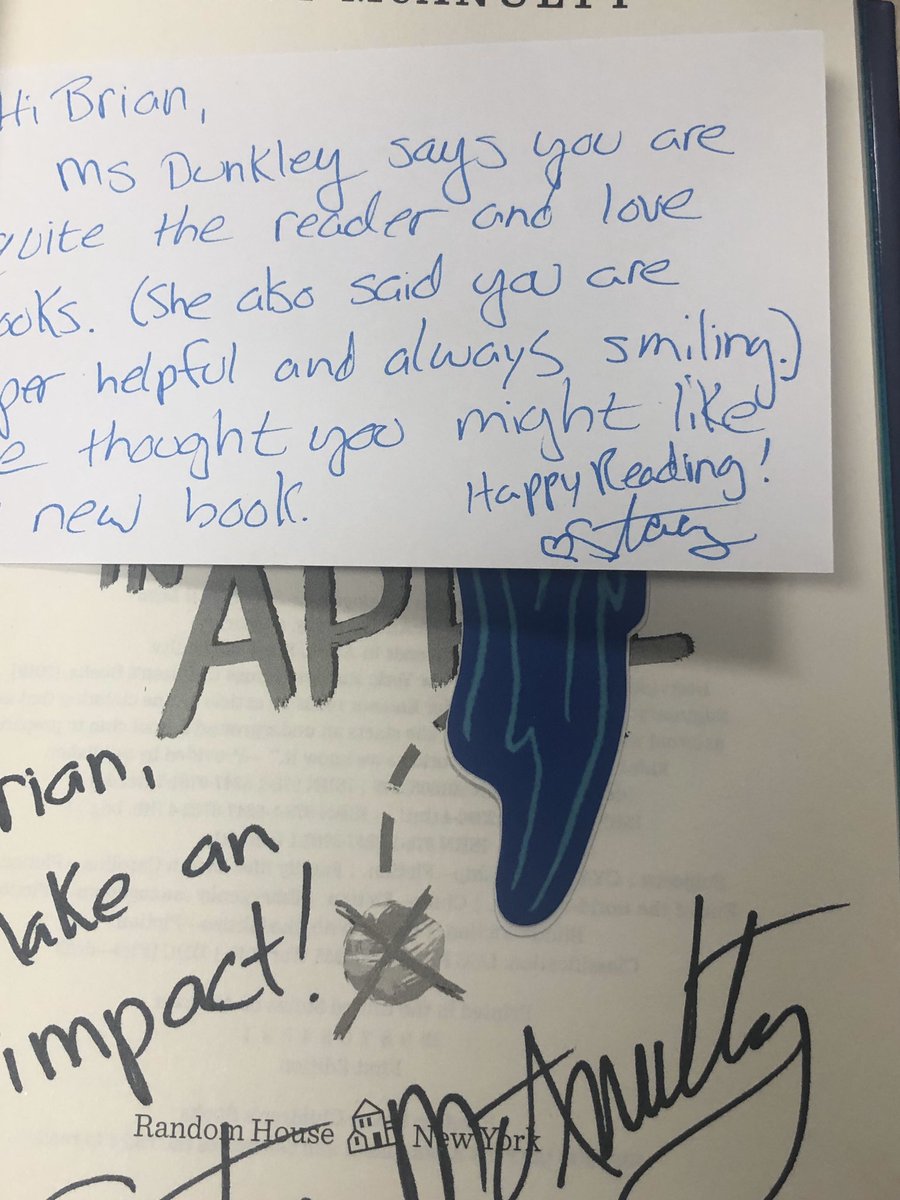 Hi Brian,
Ms Dunkley says you are
quite the reader and love
ooks. (She also said you are
per helpful and always smiling.)
e thought you might like
new book.
Happy Reading!
Stacy
IN
AP
rian,
ake an
impact!
McAnulty
Random House New York